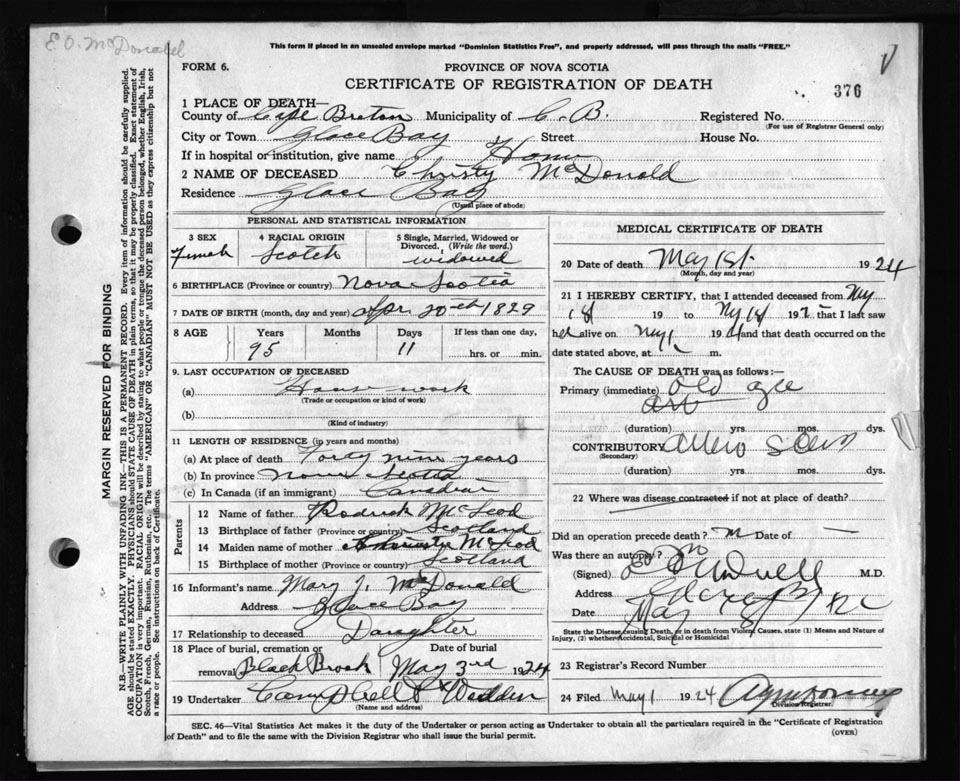 E. O. McDonald
This form if placed in an unsealed envelope marked "Dominion Statistics Free", and properly addressed, will pass through the mails "FREE."
FORM 6.
PROVINCE OF NOVA SCOTIA
CERTIFICATE OF REGISTRATION OF DEATH
376
1 PLACE OF DEATH—
County of Cape Breton Municipality of C. B. Registered No.
(For use of Registrar General only)
City or Town Glace Bay Street House No.
If in hospital or institution, give name Home
2 NAME OF DECEASED Christy McDonald
Residence Glace Bay
(Usual place of abode)
PERSONAL AND STATISTICAL INFORMATION
3 SEX 4 RACIAL ORIGIN 5 Single, Married, Widowed or Divorced. (Write the word.)
Female Scotch widowed
6 BIRTHPLACE (Province or country) Nova Scotia
7 DATE OF BIRTH (month, day and year) Apr. 20th 1829
8 AGE Years Months Days If less than one day,
95 11 hrs. or min.
9. LAST OCCUPATION OF DECEASED
(a) House work
(Trade or occupation or kind of work)
(b)
(Kind of industry)
11 LENGTH OF RESIDENCE (in years and months)
(a) At place of death Forty nine years
(b) In province Nova Scotia
(c) In Canada (if an immigrant) Canadian
Parents
12 Name of father Rodrick McLeod
13 Birthplace of father (Province or country) Scotland
14 Maiden name of mother McLeod
15 Birthplace of mother (Province or country) Scotland
16 Informant's name Mary J. McDonald
Address Glace Bay
17 Relationship to deceased Daughter
18 Place of burial, cremation or removal Date of burial
Black Brook May 3rd 1924
19 Undertaker Campbell & Wadden
(Name and address)
MEDICAL CERTIFICATE OF DEATH
20 Date of death May 1st 1924
(Month, day and year)
21 I HEREBY CERTIFY, that I attended deceased from
19 to 192 that I last saw
alive on May 1 19 and that death occurred on the
date stated above, at m.
The CAUSE OF DEATH was as follows:—
Primary (immediate) old age
(duration) yrs mos. dys.
CONTRIBUTORY
(Secondary)
(duration) yrs. mos. dys.
22 Where was disease contracted if not at place of death?
Did an operation precede death? Date of —
Was there an autopsy? no
(Signed) M.D.
Address
Date May
State the Disease causing Death, or in death from Violent Causes, state (1) Means and Nature of
Injury, (2) whether Accidental, Suicidal or Homicidal
23 Registrar's Record Number
24 Filed May 1 1924
Division Registrar.
SEC. 46—Vital Statistics Act makes it the duty of the Undertaker or person acting as Undertaker to obtain all the particulars required in the "Certificate of Registration
of Death" and to file the same with the Division Registrar who shall issue the burial permit.
(OVER)
MARGIN RESERVED FOR BINDING
N.B.—WRITE PLAINLY WITH UNFADING INK—THIS IS A PERMANENT RECORD. Every item of information should be carefully supplied.
AGE should be stated EXACTLY. PHYSICIANS should STATE CAUSE OF DEATH in plain terms, so that it may be properly classified. Exact statement of
OCCUPATION is very important. RACIAL ORIGIN will be described by stating to what people or tongue the deceased person belonged, whether English, Irish,
Scotch, French, German, Russian, Ruthenian, etc. The terms "AMERICAN" OR "CANADIAN" MUST NOT BE USED as they express citizenship but not
a race or people. See instructions on back of Certificate.